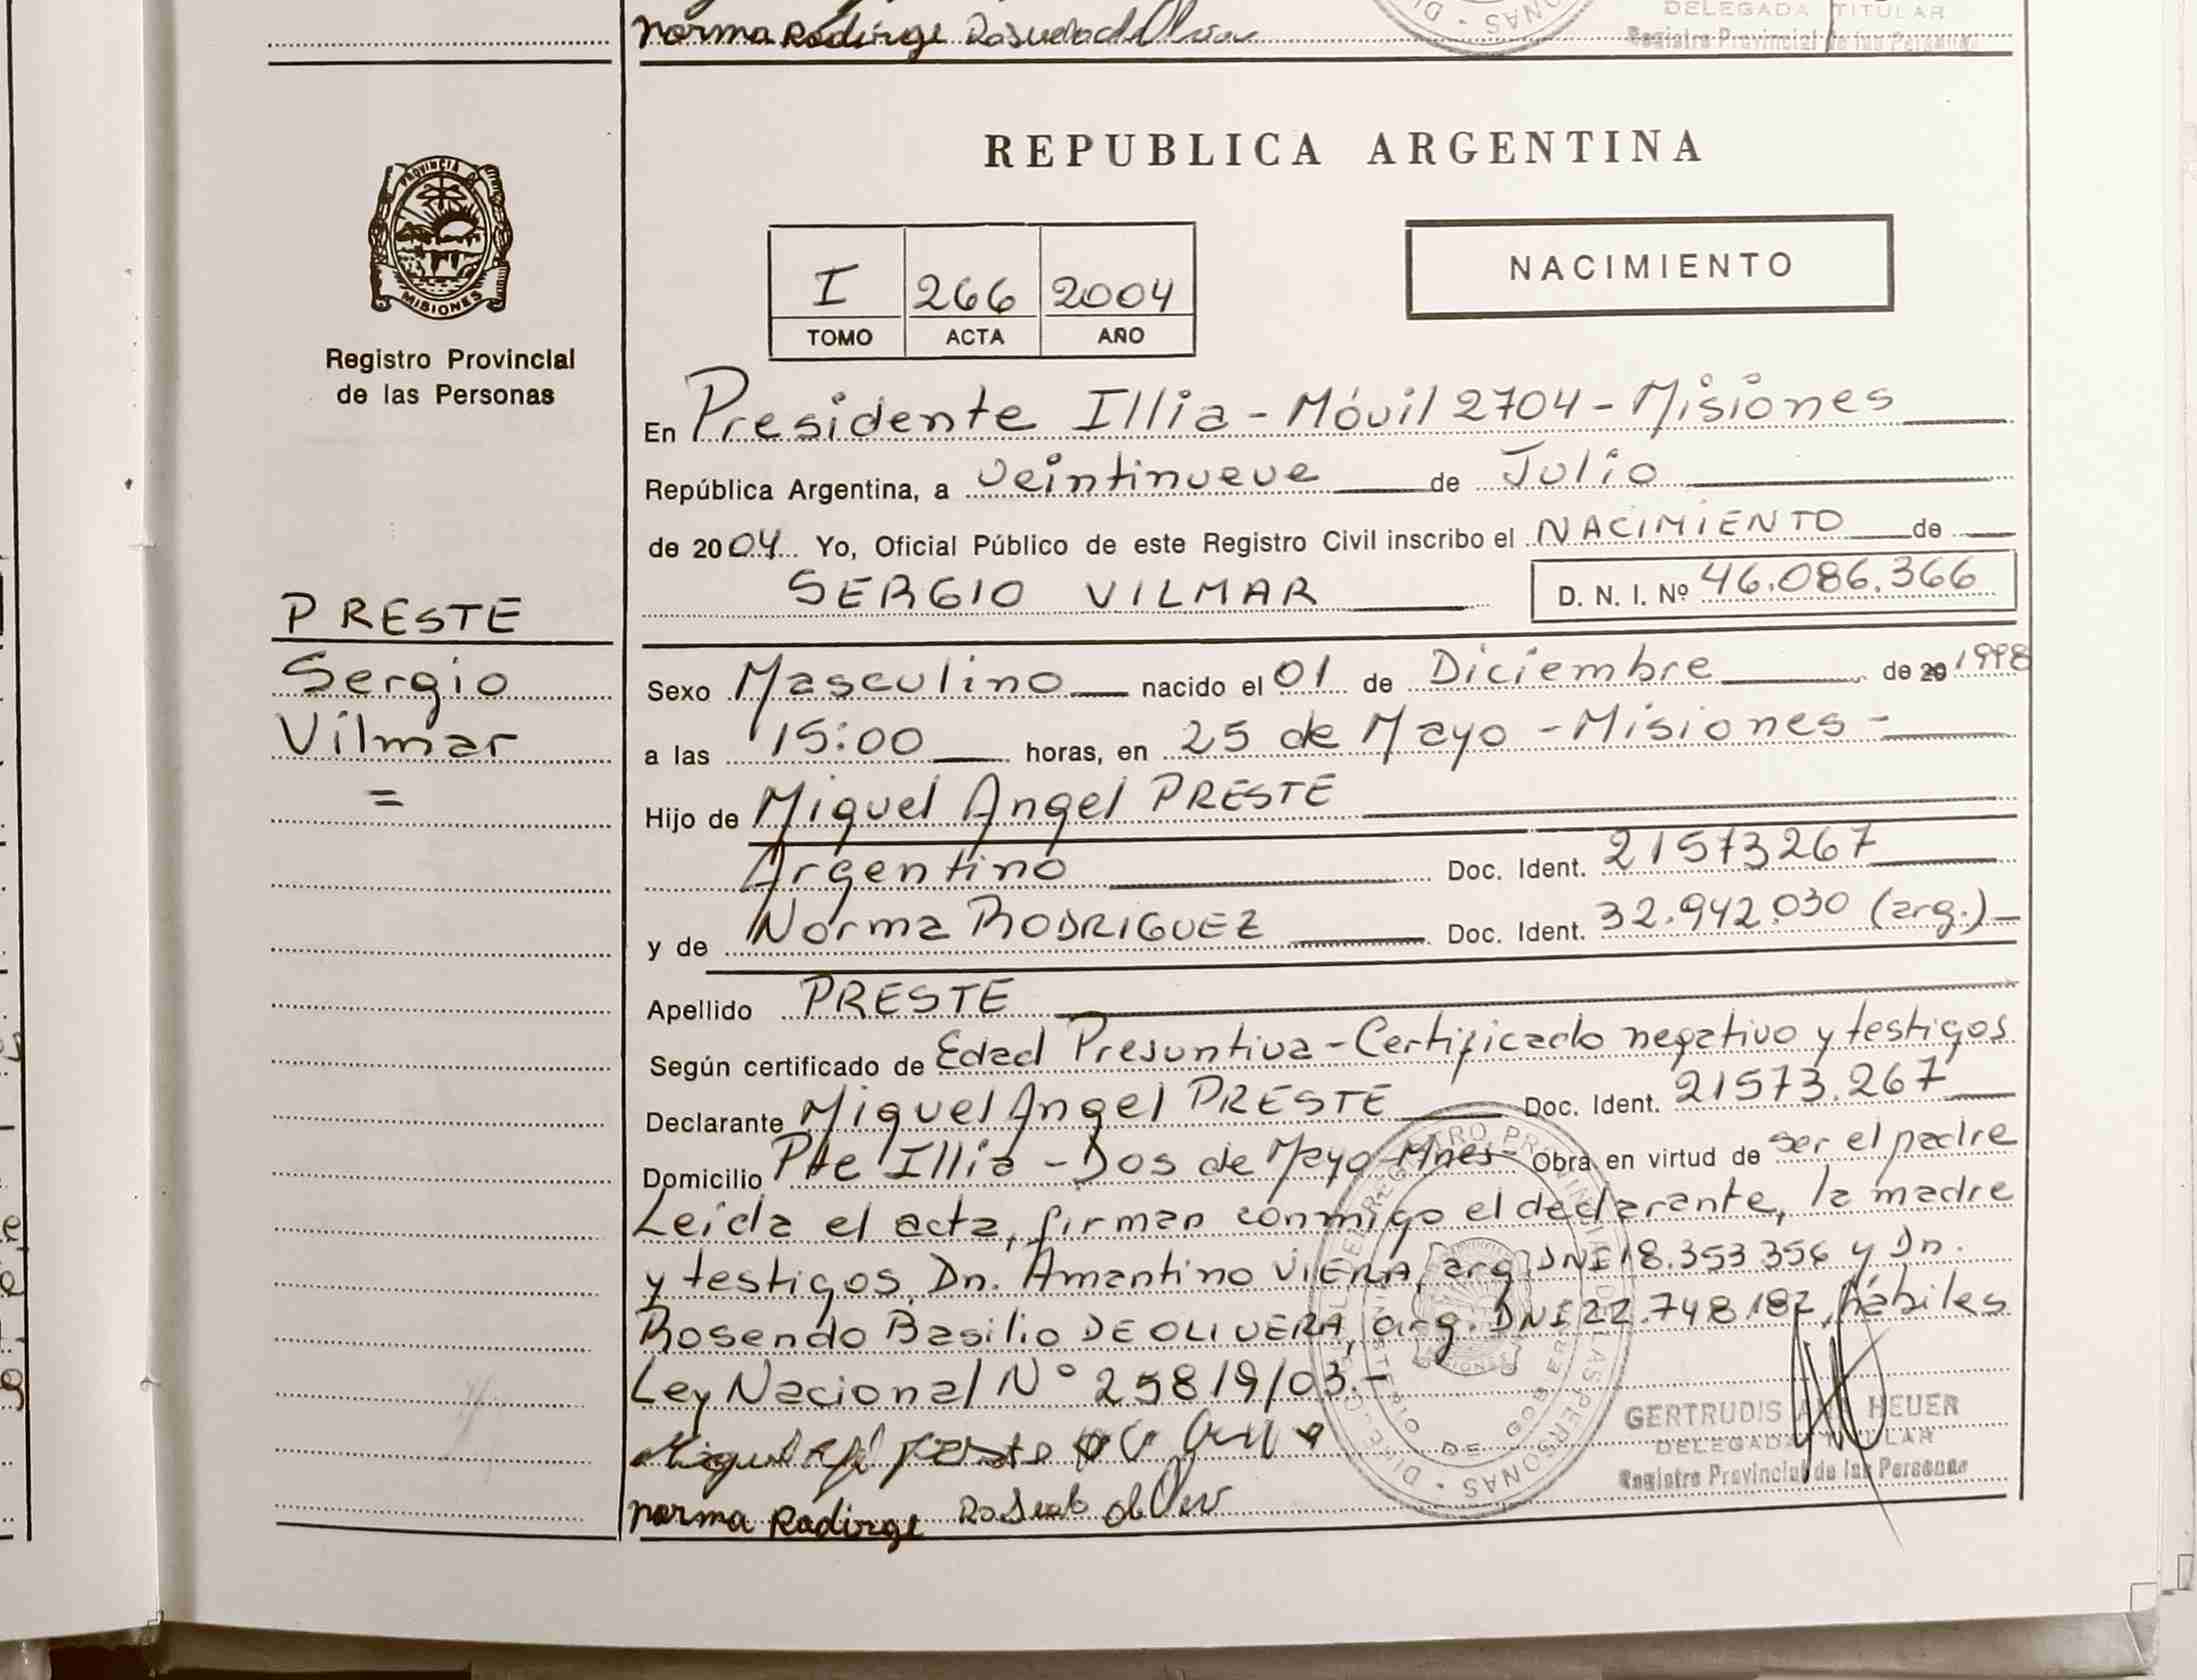 Norma Rodirge
DELEGADA TITULAR
Registro Provincial de las Personas
PROVINCIA DE
MISIONES
Registro Provincial
de las Personas
PRESTE
Sergio
Vilmar
=
REPUBLICA ARGENTINA
I 266 2004
TOMO ACTA AÑO
NACIMIENTO
En Presidente Illia - Móvil 2704 - Misiones
República Argentina, a veintinueve de Julio
de 2004 Yo, Oficial Público de este Registro Civil inscribo el NACIMIENTO de
SERGIO VILMAR D. N. I. Nº 46.086.366
Sexo Masculino nacido el 01 de Diciembre de 20 1998
a las 15:00 horas, en 25 de Mayo - Misiones -
Hijo de Miguel Angel PRESTE
Argentino Doc. Ident. 21573267
y de Norma RODRIGUEZ Doc. Ident. 32.942.030 (arg.)
Apellido PRESTE
Según certificado de Edad Presuntiva - Certificado negativo y testigos
Declarante Miguel Angel PRESTE Doc. Ident. 21573.267
Domicilio Pte Illia - Dos de Mayo - Mnes - Obra en virtud de ser el padre
Leida el acta, firman conmigo el declarante, la madre
y testigos, Dn. Amantino VIERA, arg. DNI 8.353 356 y Dn.
Rosendo Basilio DE OLIVERA, arg. DNI 22.748.187, hábiles
Ley Nacional Nº 25819/03.-
GERTRUDIS HEUER
DELEGADA TITULAR
Registro Provincial de las Personas
Norma Rodirge